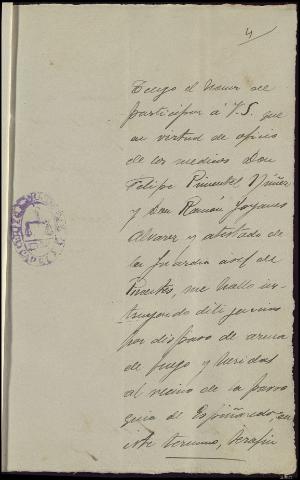 4
Tengo el honor de
participar á V.S. que
en virtud de oficio
de los medicos Don
Felipe Pimentel Núñez
y Don Ramón
Alvarez y atestado de
la Guardia civil de
Puentes, me hallo ins-
truyendo diligencias
por disparo de arma
de fuego y heridas
al vecino de la parro
quia de Espiñaredo, en
este termino, Serafin